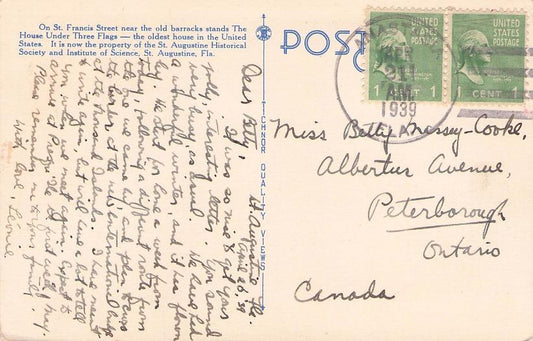 On St. Francis Street near the old barracks stands The
House Under Three Flags — the oldest house in the United
States. It is now the property of the St. Augustine Historical
Society and Institute of Science. St. Augustine, Fla.
POST
C
UNITED STATES POSTAGE
1 CENT 1
UNITED STATES POSTAGE
1 CENT 1
AM
1939
TICHNOR QUALITY VIEWS
St. Augustine Fla.
April 26 39
Dear Betty,
It was so nice to get your
jolly, interesting letter. You sound
very busy, as usual. We have had
a wonderful winter, and it has flown
by. We start for home a week from
today, following a different route from
the one we came by, and plan to cross
the border at the new International bridge
at the Thousand Islands. I have meant
to write again, but will have a lot to tell
you when we meet again. Expect to
arrive at first week May.
Please remember me to your family.
With love, Leonie
Miss Betty Massey-Cooke,
Albertus Avenue,
Peterborough
Ontario
Canada